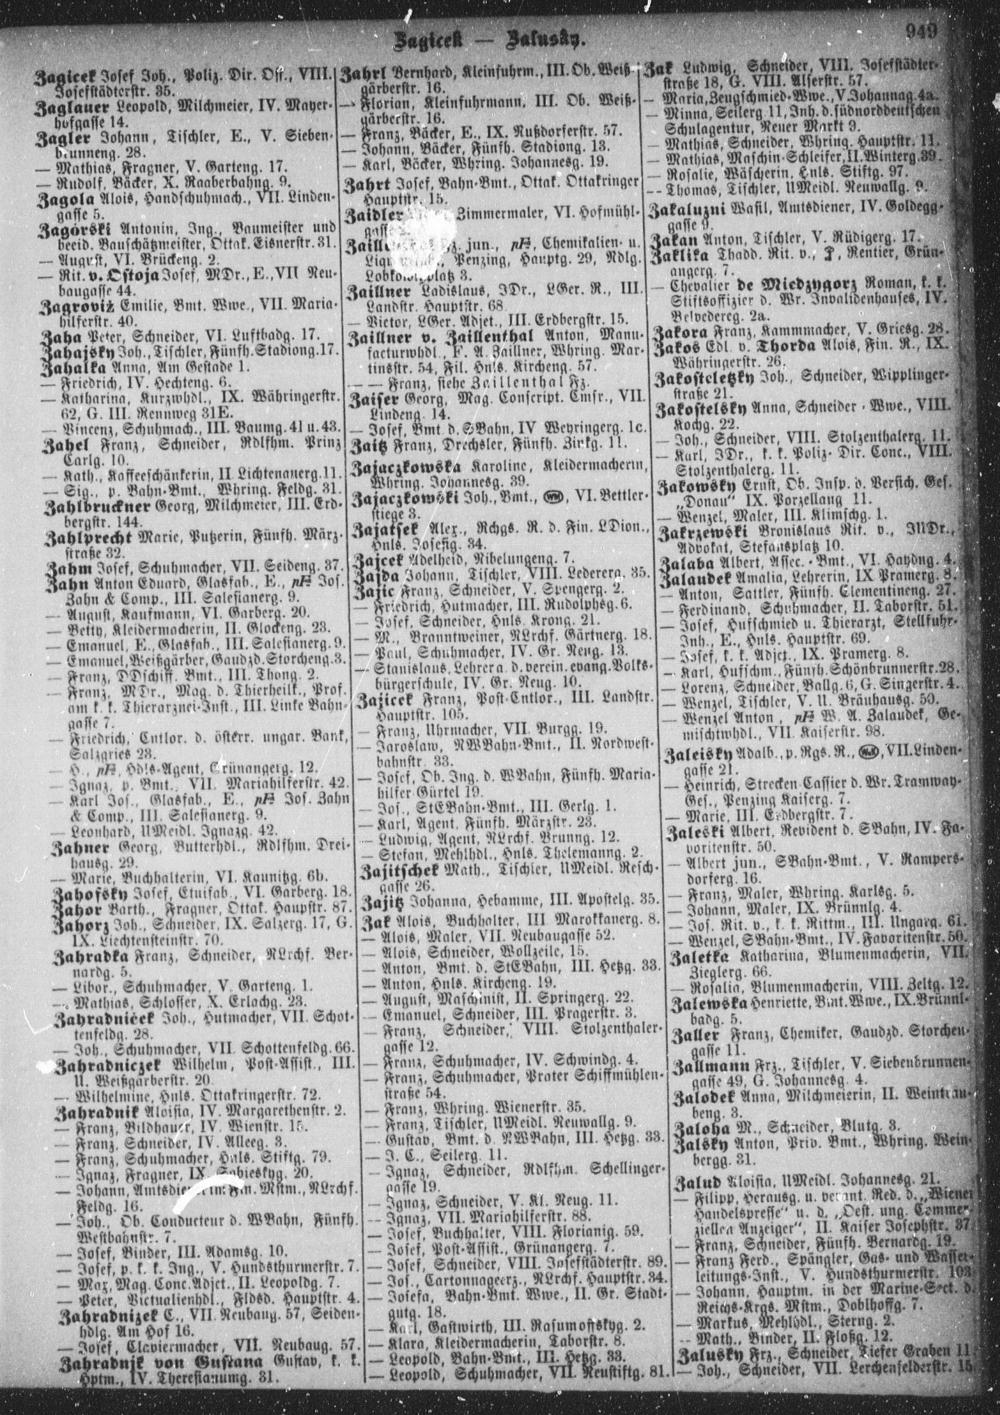 Zagicek — Zalusky.
949
Zagicek Josef Joh., Poliz. Dir. Off., VIII.
Josefstädterstr. 35.
Zaglauer Leopold, Milchmeier, IV. Mayer-
hofgasse 14.
Zagler Johann, Tischler, E., V. Sieben-
brunneng. 28.
— Mathias, Fragner, V. Garteng. 17.
— Rudolf, Bäcker, X. Raaberbahng. 9.
Zagola Alois, Handschuhmach., VII. Linden-
gasse 5.
Zagórski Antonin, Ing., Baumeister und
beeid. Bauschätzmeister, Ottak. Eisnerstr. 31.
— August, VI. Brückeng. 2.
— Rit. v. Ostoja Josef, MDr., E., VII Neu-
baugasse 44.
Zagroviz Emilie, Bmt. Wwe., VII. Maria-
hilferstr. 40.
Zaha Peter, Schneider, VI. Luftbadg. 17.
Zahajsky Joh., Tischler, Fünfh. Stadiong. 17.
Zahalka Anna, Am Gestade 1.
— Friedrich, IV. Hechteng. 6.
— Katharina, Kurzwhdl., IX. Währingerstr.
62, G. III. Rennweg 31E.
— Vincenz, Schuhmach., III. Baumg. 41 u. 43.
Zahel Franz, Schneider, Rdlfhm. Prinz
Carlg. 10.
— Kath., Kaffeeschänkerin, II Lichtenauerg. 11.
— Sig., p. Bahn-Bmt., Whring. Feldg. 31.
Zahlbruckner Georg, Milchmeier, III. Erd-
bergstr. 144.
Zahlprecht Marie, Putzerin, Fünfh. März-
straße 32.
Zahm Josef, Schuhmacher, VII. Seideng. 37.
Zahn Anton Eduard, Glasfab., E., pA Jos.
Zahn & Comp., III. Salesianerg. 9.
— August, Kaufmann, VI. Garberg. 20.
— Betty, Kleidermacherin, II. Glockeng. 23.
— Emanuel, E., Glasfab., III. Salesianerg. 9.
— Emanuel, Weißgärber, Gaudzd. Storcheng. 3.
— Franz, DDschiff. Bmt., III. Thong. 2.
— Franz, MDr., Mag. d. Thierheilk., Prof.
am k. k. Thierarznei-Inst., III. Linke Bahn-
gasse 7.
— Friedrich, Cntlor. d. österr. ungar. Bank,
Salzgries 23.
— H., pA, Hdls-Agent, Grünangerg. 12.
— Ignaz, p. Bmt., VII. Mariahilferstr. 42.
— Karl Jos., Glasfab., E., pA Jos. Zahn
& Comp., III. Salesianerg. 9.
— Leonhard, UMeidl. Ignazg. 42.
Zahner Georg, Butterhdl., Rdlfhm. Drei-
hausg. 29.
— Marie, Buchhalterin, VI. Kaunitzg. 6b.
Zahofsky Josef, Etuifab., VI. Garberg. 18.
Zahor Barth., Fragner, Ottak. Hauptstr. 87.
Zahorz Joh., Schneider, IX. Salzerg. 17, G.
IX. Liechtensteinstr. 70.
Zahradka Franz, Schneider, NLrchf. Ber-
nardg. 5.
— Libor., Schuhmacher, V. Garteng. 1.
— Mathias, Schlosser, X. Erlachg. 23.
Zahradniček Joh., Hutmacher, VII. Schot-
tenfeldg. 28.
— Joh., Schuhmacher, VII. Schottenfeldg. 66.
Zahradniczek Wilhelm, Post-Assist., III.
U. Weißgärberstr. 20.
— Wilhelmine, Hnls. Ottakringerstr. 72.
Zahradnik Aloisia, IV. Margarethenstr. 2.
— Franz, Bildhauer, IV. Wienstr. 15.
— Franz, Schneider, IV. Alleeg. 3.
— Franz, Schuhmacher, Hnls. Stiftg. 79.
— Ignaz, Fragner, IX. Sobieskyg. 20.
— Johann, Amtsdiener im Fin. Mstm., NLrchf.
Feldg. 16.
— Joh., Ob. Conducteur d. WBahn, Fünfh.
Westbahnstr. 7.
— Josef, Binder, III. Adamsg. 10.
— Josef, p. k. k. Ing., V. Hundsthurmerstr. 7.
— Max, Mag. Conc. Adjct., II. Leopoldg. 7.
— Peter, Victualienhdl., Fldsd. Hauptstr. 4.
Zahradnizek C., VII. Neubaug. 57, Seiden-
hdlg. Am Hof 16.
— Josef, Claviermacher, VII. Neubaug. 57.
Zahradnik von Gustana Gustav, k. k.
Hptm., IV. Theresianumg. 31.
Zahrl Bernhard, Kleinfuhrm., III. Ob. Weiß-
gärberstr. 16.
— Florian, Kleinfuhrmann, III. Ob. Weiß-
gärberstr. 16.
— Franz, Bäcker, E., IX. Nußdorferstr. 57.
— Johann, Bäcker, Fünfh. Stadiong. 13.
— Karl, Bäcker, Whring. Johannesg. 19.
Zahrt Josef, Bahn-Bmt., Ottak. Ottakringer
Hauptstr. 15.
Zaidler Zimmermaler, VI. Hofmühl-
gasse
jun., pA, Chemikalien- u.
Penzing, Hauptg. 29, Ndlg.
Lobkowitzplatz 3.
Zaillner Ladislaus, JDr., LGer. R., III.
Landstr. Hauptstr. 68
— Victor, LGer. Adjct., III. Erdbergstr. 15.
Zaillner v. Zaillenthal Anton, Manu-
facturwhdl., F. A. Zaillner, Whring. Mar-
tinsstr. 54, Fil. Hnls. Kircheng. 57.
— — Franz, siehe Zaillenthal Fz.
Zaiser Georg, Mag. Conscript. Cmsr., VII.
Lindeng. 14.
— Josef, Bmt. d. SBahn, IV Weyringerg. 1c.
Zaitz Franz, Drechsler, Fünfh. Zirkg. 11.
Zajaczkowska Karoline, Kleidermacherin,
Whring. Johannesg. 39.
Zajaczkowski Joh., Bmt., VI. Bettler-
stiege 3.
Zajatsek Alex., Rchgs. R. d. Fin. LDion.,
Hnls. Josefig. 34.
Zajcek Adelheid, Nibelungeng. 7.
Zajda Johann, Tischler, VIII. Ledererg. 35.
Zajic Franz, Schneider, V. Spengerg. 2.
— Friedrich, Hutmacher, III. Rudolphsg. 6.
— Josef, Schneider, Hnls. Krong. 21.
— M., Branntweiner, NLrchf. Gärtnerg. 18.
— Paul, Schuhmacher, IV. Gr. Neug. 13.
— Stanislaus, Lehrer a. d. verein. evang. Volks-
bürgerschule, IV. Gr. Neug. 10.
Zajicek Franz, Post-Cntlor., III. Landstr.
Hauptstr. 105.
— Franz, Uhrmacher, VII. Burgg. 19.
— Jaroslaw, NWBahn-Bmt., II. Nordwest-
bahnstr. 33.
— Josef, Ob. Ing. d. WBahn, Fünfh. Maria-
hilfer Gürtel 19.
— Jos., StEBahn-Bmt., III. Gerlg. 1.
— Karl, Agent, Fünfh. Märzstr. 23.
— Ludwig, Agent, NLrchf. Brunng. 12.
— Stefan, Mehlhdl., Hnls. Thelemanng. 2.
Zajitschek Math., Tischler, UMeidl. Resch-
gasse 26.
Zajitz Johanna, Hebamme, III. Apostelg. 35.
Zak Alois, Buchhalter, III Marokkanerg. 8.
— Alois, Maler, VII. Neubaugasse 52.
— Alois, Schneider, Wollzeile, 15.
— Anton, Bmt. d. StEBahn, III. Hetzg. 33.
— Anton, Hnls. Kircheng. 19.
— August, Maschinist, II. Springerg. 22.
— Emanuel, Schneider, III. Pragerstr. 3.
— Franz, Schneider, VIII. Stolzenthaler-
gasse 12.
— Franz, Schuhmacher, IV. Schwindg. 4.
— Franz, Schuhmacher, Prater Schiffmühlen-
straße 54.
— Franz, Whring. Wienerstr. 35.
— Franz, Tischler, UMeidl. Neuwallg. 9.
— Gustav, Bmt. d. NWBahn, III. Hetzg. 33.
— J. C., Seilerg. 11.
— Ignaz, Schneider, Rdlfhm. Schellinger-
gasse 19.
— Ignaz, Schneider, V. Kl. Neug. 11.
— Ignaz, VII. Mariahilferstr. 88.
— Josef, Buchhalter, VIII. Florianig. 59.
— Josef, Post-Assist., Grünangerg. 7.
— Josef, Schneider, VIII. Josefstädterstr. 89.
— Jos., Cartonnageerz., NLrchf. Hauptstr. 34.
— Josefa, Bahn-Bmt. Wwe., II. Gr. Stadt-
gutg. 18.
— Karl, Gastwirth, III. Rasumofskyg. 2.
— Klara, Kleidermacherin, Taborstr. 8.
— Leopold, Bahn-Bmt., III. Hetzg. 33.
— Leopold, Schuhmacher, VII. Neustiftg. 81.
Zak Ludwig, Schneider, VIII. Josefstädter-
straße 18, G. VIII. Alserstr. 57.
— Maria, Zeugschmied-Wwe., V. Johannag. 4a.
— Minna, Seilerg. 11, Inh. d. südnorddeutschen
Schulagentur, Neuer Markt 9.
— Mathias, Schneider, Whring. Hauptstr. 11.
— Mathias, Maschin-Schleifer, II. Winterg. 39.
— Rosalie, Wäscherin, Hnls. Stiftg. 97.
— Thomas, Tischler, UMeidl. Neuwallg. 9.
Zakaluzni Wasil, Amtsdiener, IV. Goldegg-
gasse 9.
Zakan Anton, Tischler, V. Rüdigerg. 17.
Zaklika Thadd. Rit. v., Rentier, Grün-
angerg. 7.
— Chevalier de Miedzygorz Roman, k. k.
Stiftsoffizier d. Wr. Invalidenhauses, IV.
Belvedereg. 2a.
Zakora Franz, Kammmacher, V. Griesg. 28.
Zakos Edl. v. Thorda Alois, Fin. R., IX.
Währingerstr. 26.
Zakosteletzky Joh., Schneider, Wipplinger-
straße 21.
Zakostelsky Anna, Schneider-Wwe., VIII.
Kochg. 22.
— Joh., Schneider, VIII. Stolzenthalerg. 11.
— Karl, JDr., k. k. Poliz-Dir. Conc., VIII.
Stolzenthalerg. 11.
Zakowsky Ernst, Ob. Insp. d. Versich. Ges.
„Donau“ IX. Porzellang 11.
— Wenzel, Maler, III. Klimschg. 1.
Zakrzewski Bronislaus Rit. v., JUDr.,
Advokat, Stefansplatz 10.
Zalaba Albert, Assec.-Bmt., VI. Haydng. 4.
Zalaudek Amalia, Lehrerin, IX Pramerg. 8.
— Anton, Sattler, Fünfh. Clementineng. 27.
— Ferdinand, Schuhmacher, II. Taborstr. 51.
— Josef, Hufschmied u. Thierarzt, Stellfuhr-
Inh., E., Hnls. Hauptstr. 69.
— Josef, k. k. Adjct., IX. Pramerg. 8.
— Karl, Hufschm., Fünfh. Schönbrunnerstr. 28.
— Lorenz, Schneider, Ballg. 6, G. Singerstr. 4.
— Wenzel, Tischler, V. U. Bräuhausg. 50.
— Wenzel Anton, pA W. A. Zalaudek, Ge-
mischtwhdl., VII. Kaiserstr. 98.
Zaleisky Adalb., p. Rgs. R., VII. Linden-
gasse 21.
— Heinrich, Strecken-Cassier d. Wr. Tramway-
Ges., Penzing Kaiserg. 7.
— Marie, III. Erdbergstr. 7.
Zaleski Albert, Revident d. SBahn, IV. Fa-
voritenstr. 50.
— Albert jun., SBahn-Bmt., V. Rampers-
dorferg. 16.
— Franz, Maler, Whring. Karlsg. 5.
— Johann, Maler, IX. Brünnlg. 4.
— Jos. Rit. v., k. k. Rittm., III. Ungarg. 61.
— Wenzel, SBahn-Bmt., IV. Favoritenstr. 50.
Zaletka Katharina, Blumenmacherin, VII.
Zieglerg. 66.
— Rosalia, Blumenmacherin, VIII. Zeltg. 12.
Zalewska Henriette, Bmt. Wwe., IX. Brünnl-
badg. 5.
Zaller Franz, Chemiker, Gaudzd. Storchen-
gasse 11.
Zallmann Frz., Tischler, V. Siebenbrunnen-
gasse 49, G. Johannesg. 4.
Zalodek Anna, Milchmeierin, II. Weintrau-
beng. 3.
Zaloha M., Schneider, Blutg. 3.
Zalsky Anton, Priv. Bmt., Whring. Wein-
bergg. 31.
Zalud Aloisia, UMeidl. Johannesg. 21.
— Filipp, Herausg. u. verant. Red. d. „Wiener
Handelspresse“ u. d. „Oest. ung. Commer-
ziellen Anzeiger“, II. Kaiser Josephstr. 37
— Franz, Schneider, Fünfh. Bernardg. 19.
— Franz Ferd., Spängler, Gas- und Wasser-
leitungs-Inst., V. Hundsthurmerstr. 103
— Johann, Hauptm. in der Marine-Sect. d.
Reichs-Krgs. Mstm., Doblhoffg. 7.
— Markus, Mehlhdl., Sterng. 2.
— Math., Binder, II. Floßg. 12.
Zalusky Frz., Schneider, Tiefer Graben 11
— Joh., Schneider, VII. Lerchenfelderstr. 15